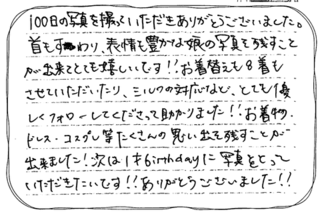 100日の写真を撮っていただきありがとうございました。
首もすわり、表情も豊かな娘の写真を残すこと
が出来てとても嬉しいです!!お着替えも8着も
させていただいたり、ミルクの対応など、とても優
しくフォローしてくださって助かりました!!お着物、
ドレス・コスプレ等たくさんの思い出を残すことが
出来ました!次は1才birthdayに写真をとって
いただきたいです!!ありがとうございました!!